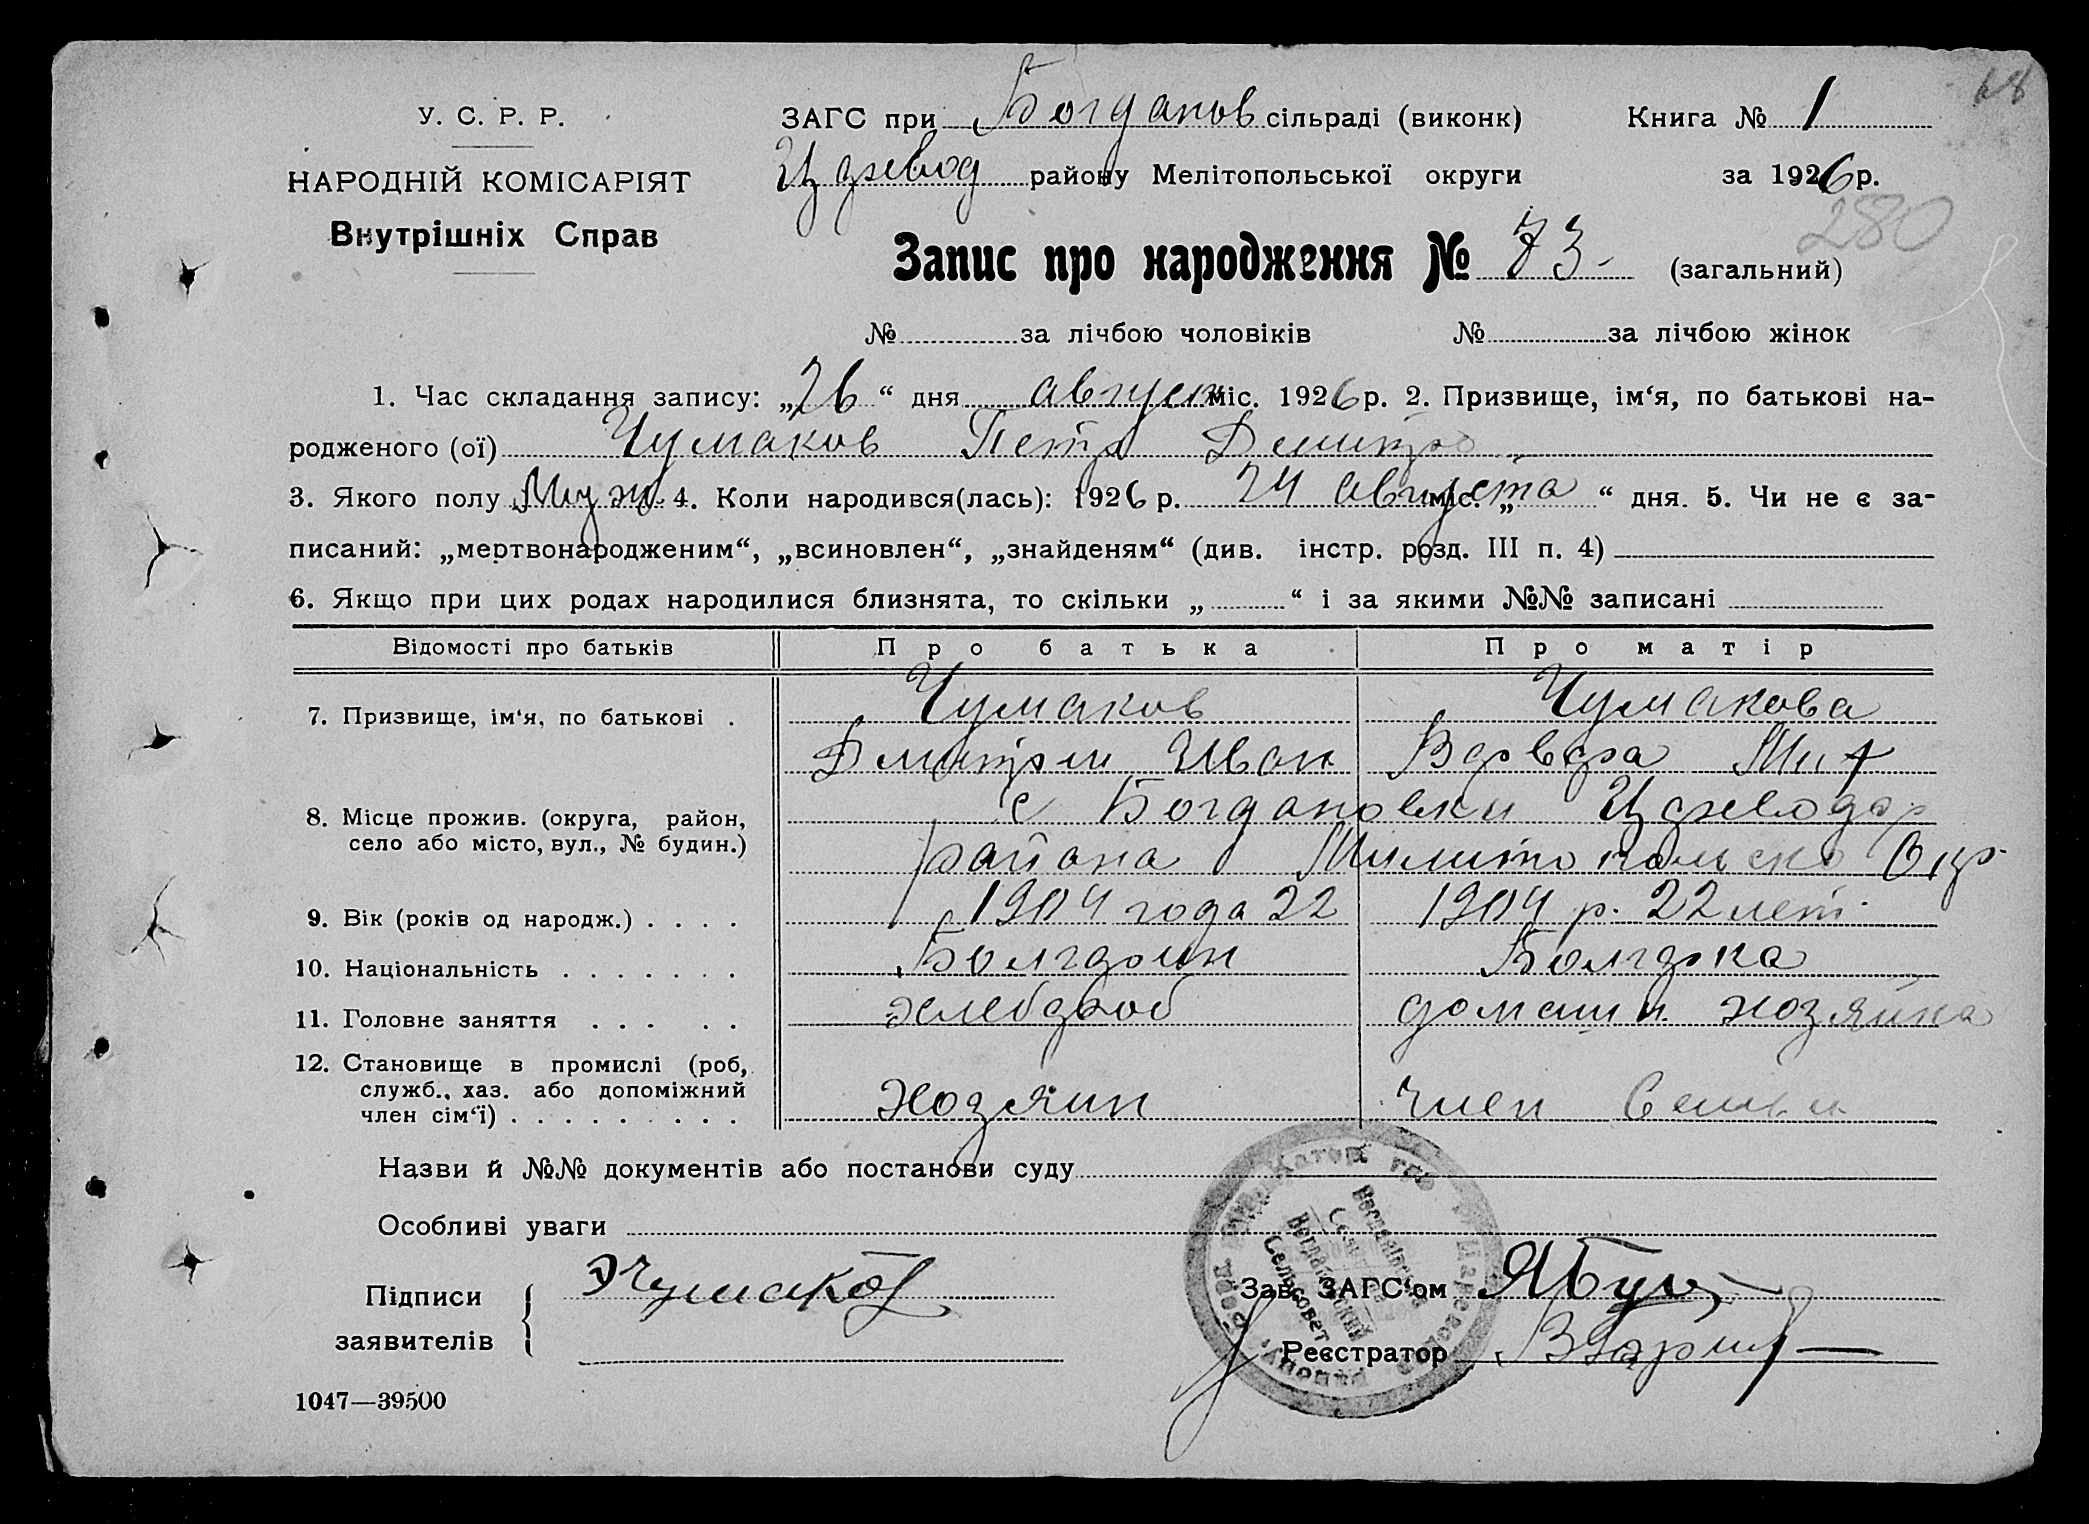 68
У. С. Р. Р.
НАРОДНІЙ КОМІСАРІЯТ
Внутрішніх Справ
ЗАГС при Богданов сільраді (виконк)
Цареvод району Мелітопольської округи
Книга № 1
за 1926 р.
280
Запис про народження № 73 (загальний)
№ за лічбою чоловіків № за лічбою жінок
1. Час складання запису: „26“ дня август міс. 1926 р. 2. Призвище, ім‘я, по батькові на-
родженого (ої) Чумаков Петр Дмитро
3. Якого полу Муж 4. Коли народився(лась): 1926 р. 24 августа міс. „ “ дня. 5. Чи не є за-
писаний: „мертвонародженим“, „всиновлен“, „знайденям“ (див. інстр. розд. III п. 4)
6. Якщо при цих родах народилися близнята, то скільки „ “ і за якими №№ записані
Відомості про батьків Про батька Про матір
7. Призвище, ім‘я, по батькові . Чумаков Чумакова
Дмитрий Иван Варвара Миф
8. Місце прожив. (округа, район, с Богдановки Цареводар
село або місто, вул., № будин.) района Милитопольско Окр
9. Вік (років од народж.) . . . . 1904 года 22 1904 р. 22 лет
10. Національність . . . . . . . Болгарин Болгарка
11. Головне заняття . . . . . хлебороб домашн. хозяйка
12. Становище в промислі (роб,
служб., хаз. або допоміжний
член сім‘ї) . . . . . . . . . Хозяин член Семьи
Назви й №№ документів або постанови суду
Особливі уваги
Підписи Чумаков
заявителів
Зав. ЗАГС‘ом
Реєстратор
Сельсовет
1047—39500